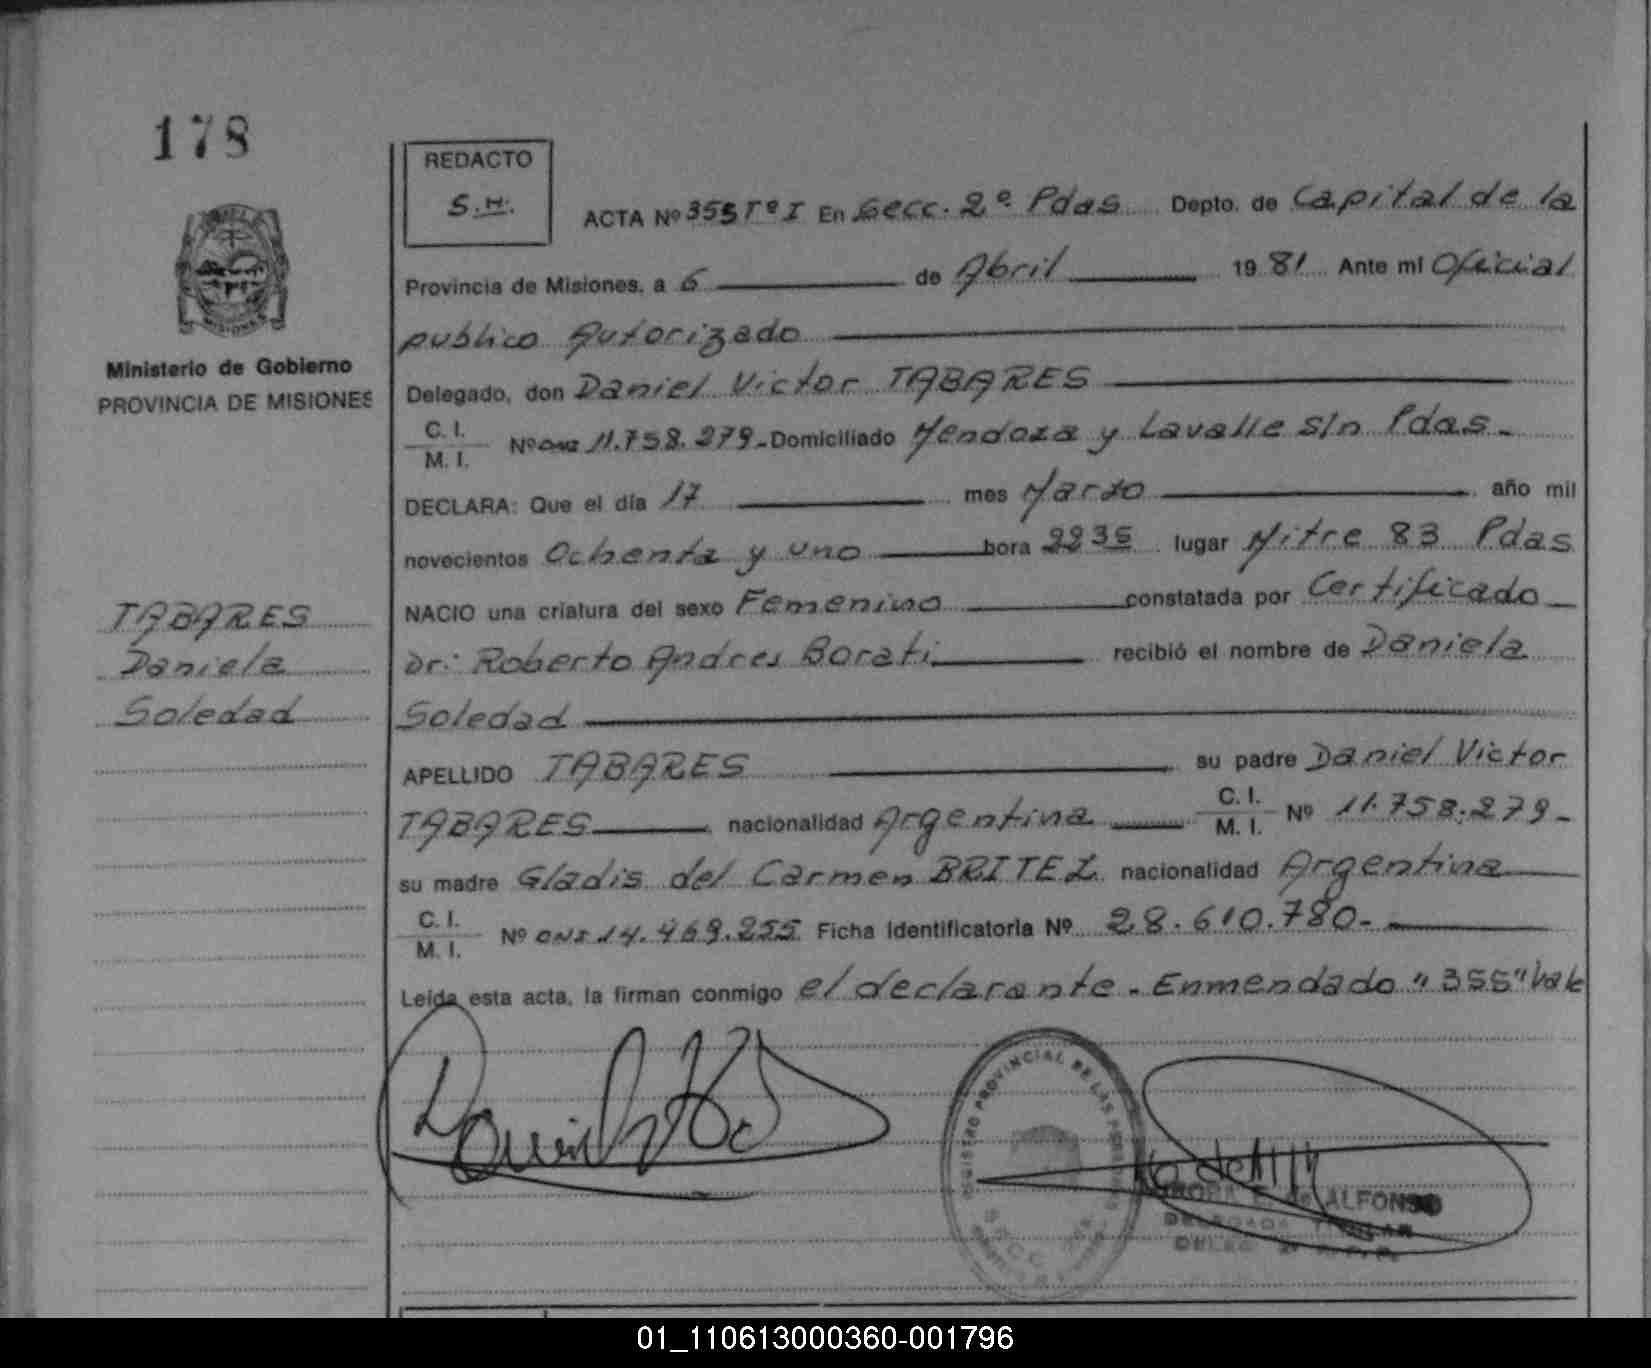 178
REDACTO
S.H.
ACTA Nº 355 Tº I En Secc. 2º Pdas Depto. de Capital de la
Provincia de Misiones, a 6 de Abril 1981 Ante mi Oficial
publico Autorizado
Ministerio de Gobierno
PROVINCIA DE MISIONES
Delegado, don Daniel Victor TABARES
C. I.
M. I.
Nº 11.758.279.- Domiciliado Mendoza y Lavalle s/n Pdas.-
DECLARA: Que el día 17 mes Marzo año mil
novecientos Ochenta y uno hora 2235 lugar Mitre 83 Pdas
NACIO una criatura del sexo Femenino constatada por Certificado
Dr: Roberto Andres Borati recibió el nombre de Daniela
Soledad
TABARES
Daniela
Soledad
APELLIDO TABARES su padre Daniel Victor
TABARES nacionalidad Argentina C. I. M. I. Nº 11.758.279-
su madre Gladis del Carmen BRITEZ nacionalidad Argentina
C. I.
M. I.
Nº DNI 14.469.255 Ficha Identificatoria Nº 28.610.780-
Leída esta acta, la firman conmigo el declarante. Enmendado "355" Vale
REGISTRO PROVINCIAL DE LAS PERSONAS
ALFONSO
DELEGADA TITULAR
01_110613000360-001796